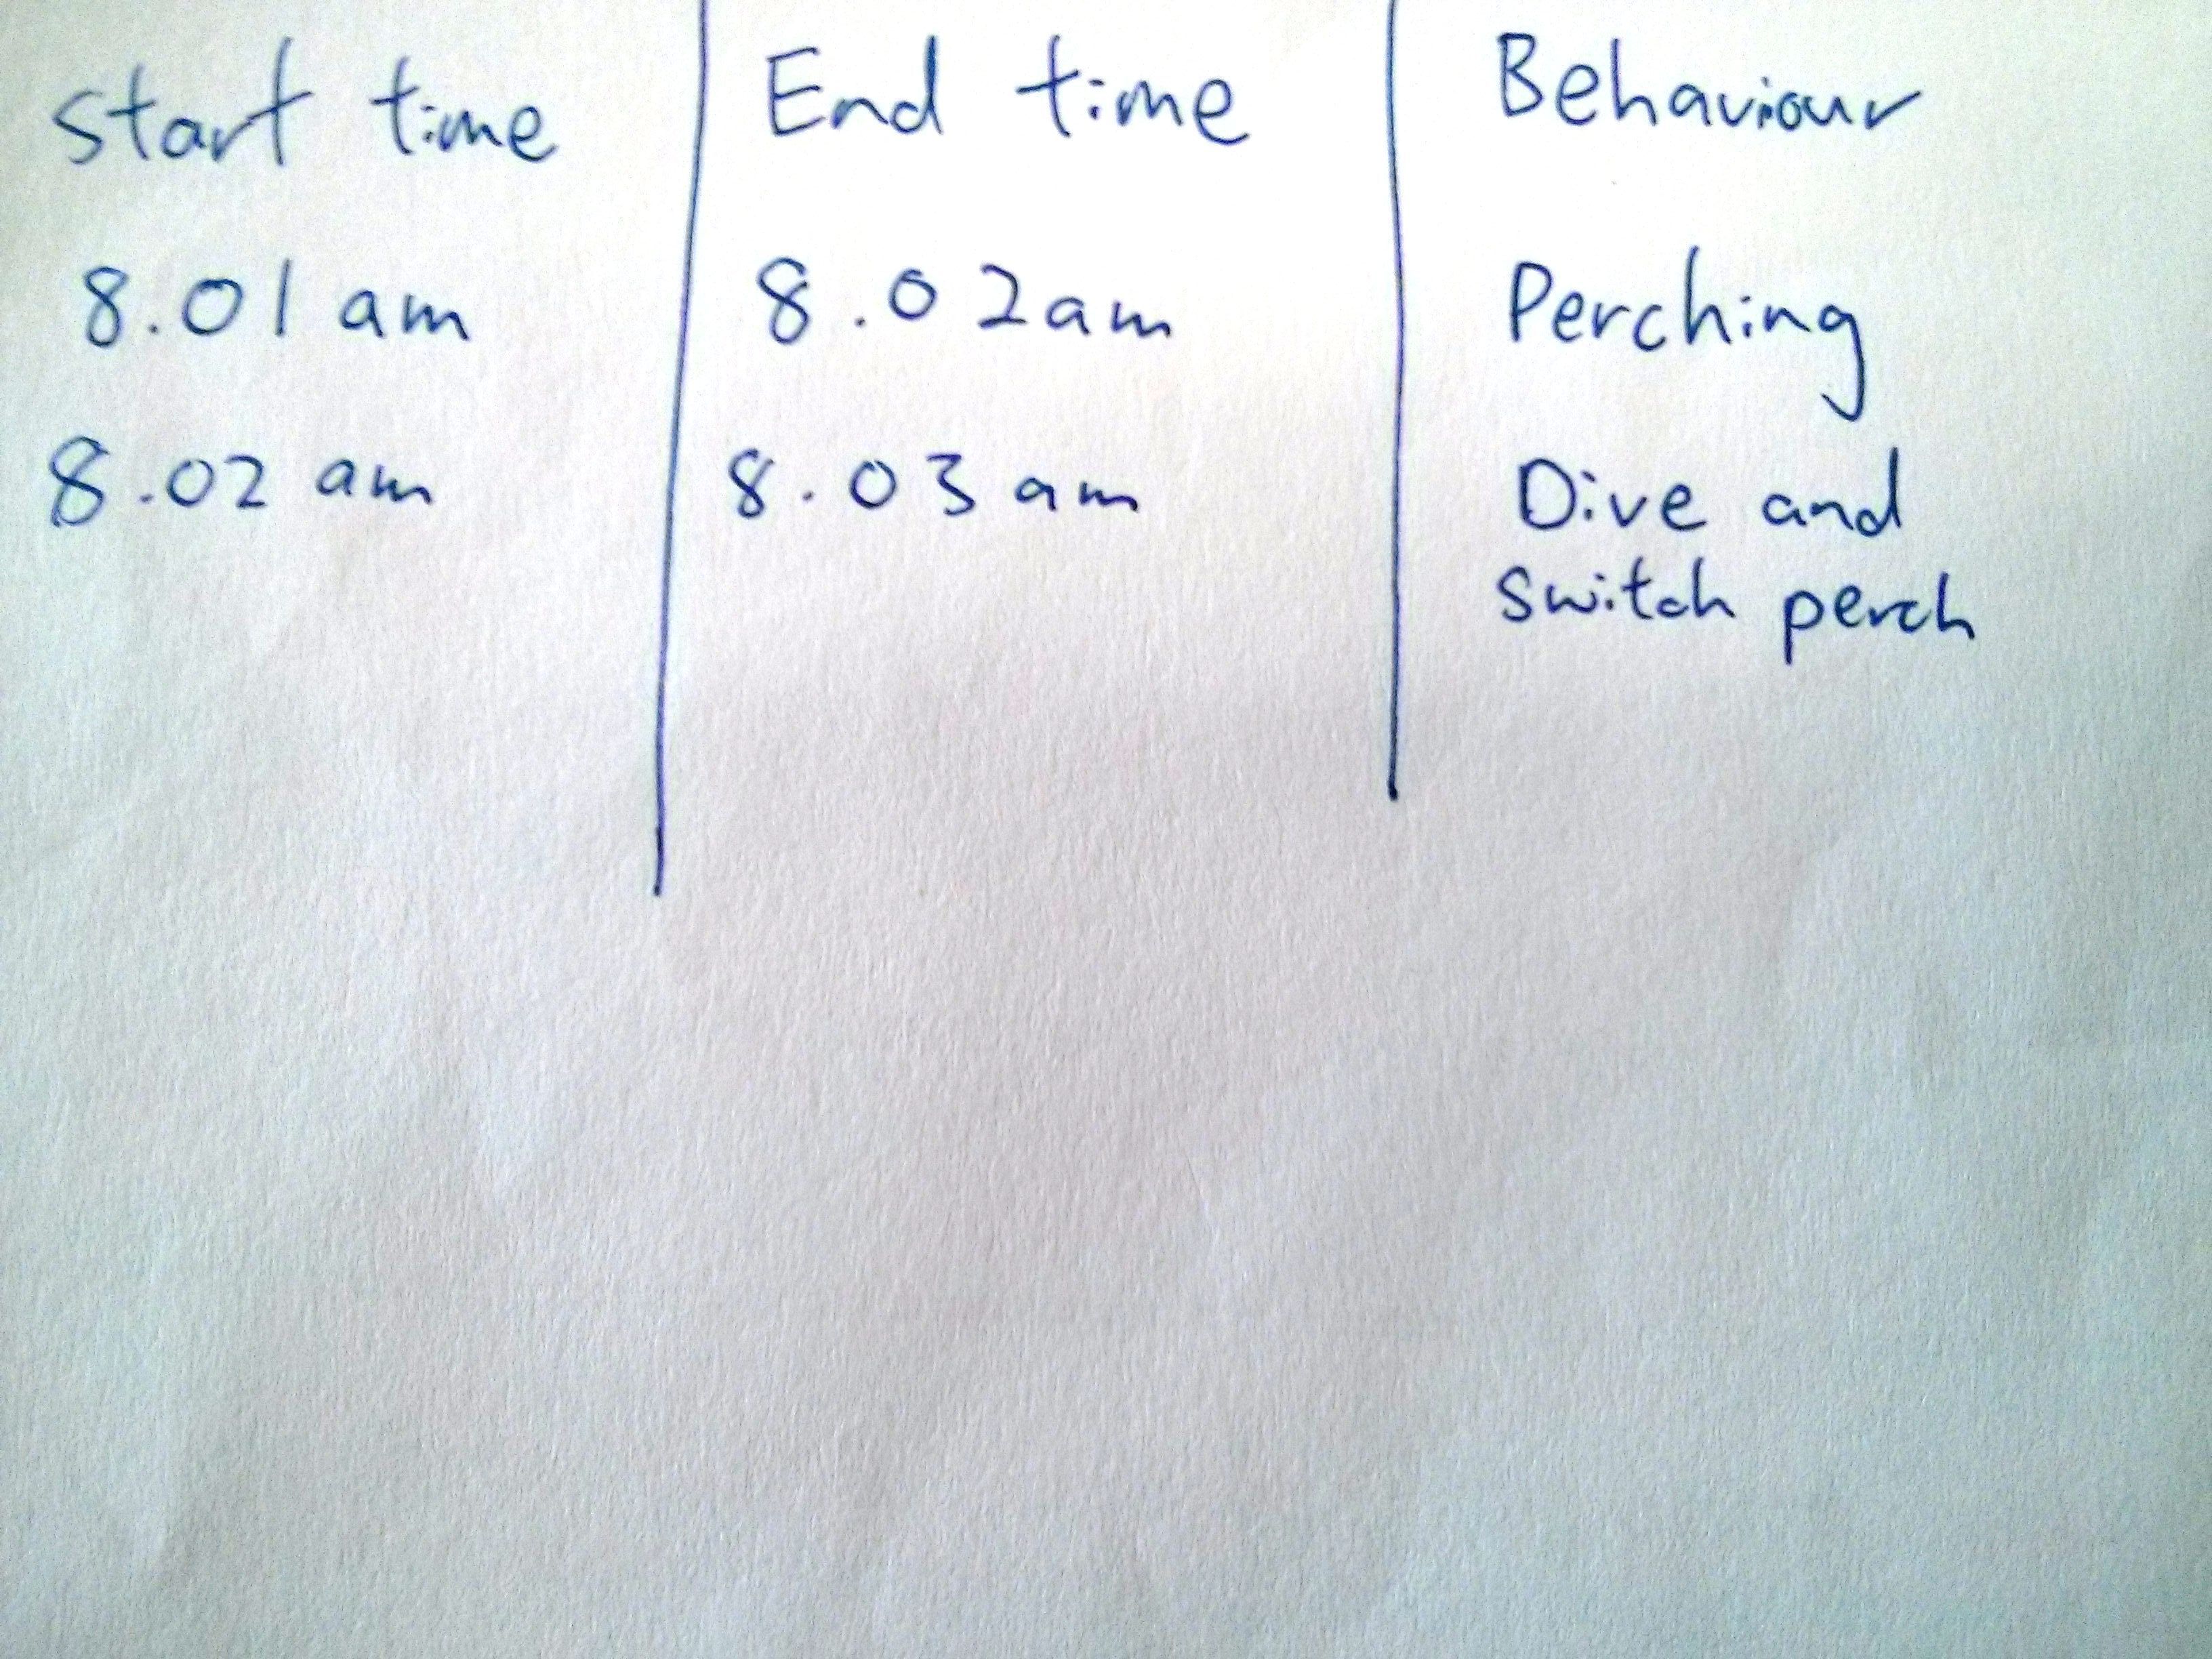 start time End time Behaviour
8.01 am 8.02 am Perching
8.02 am 8.03 am Dive and
switch perch